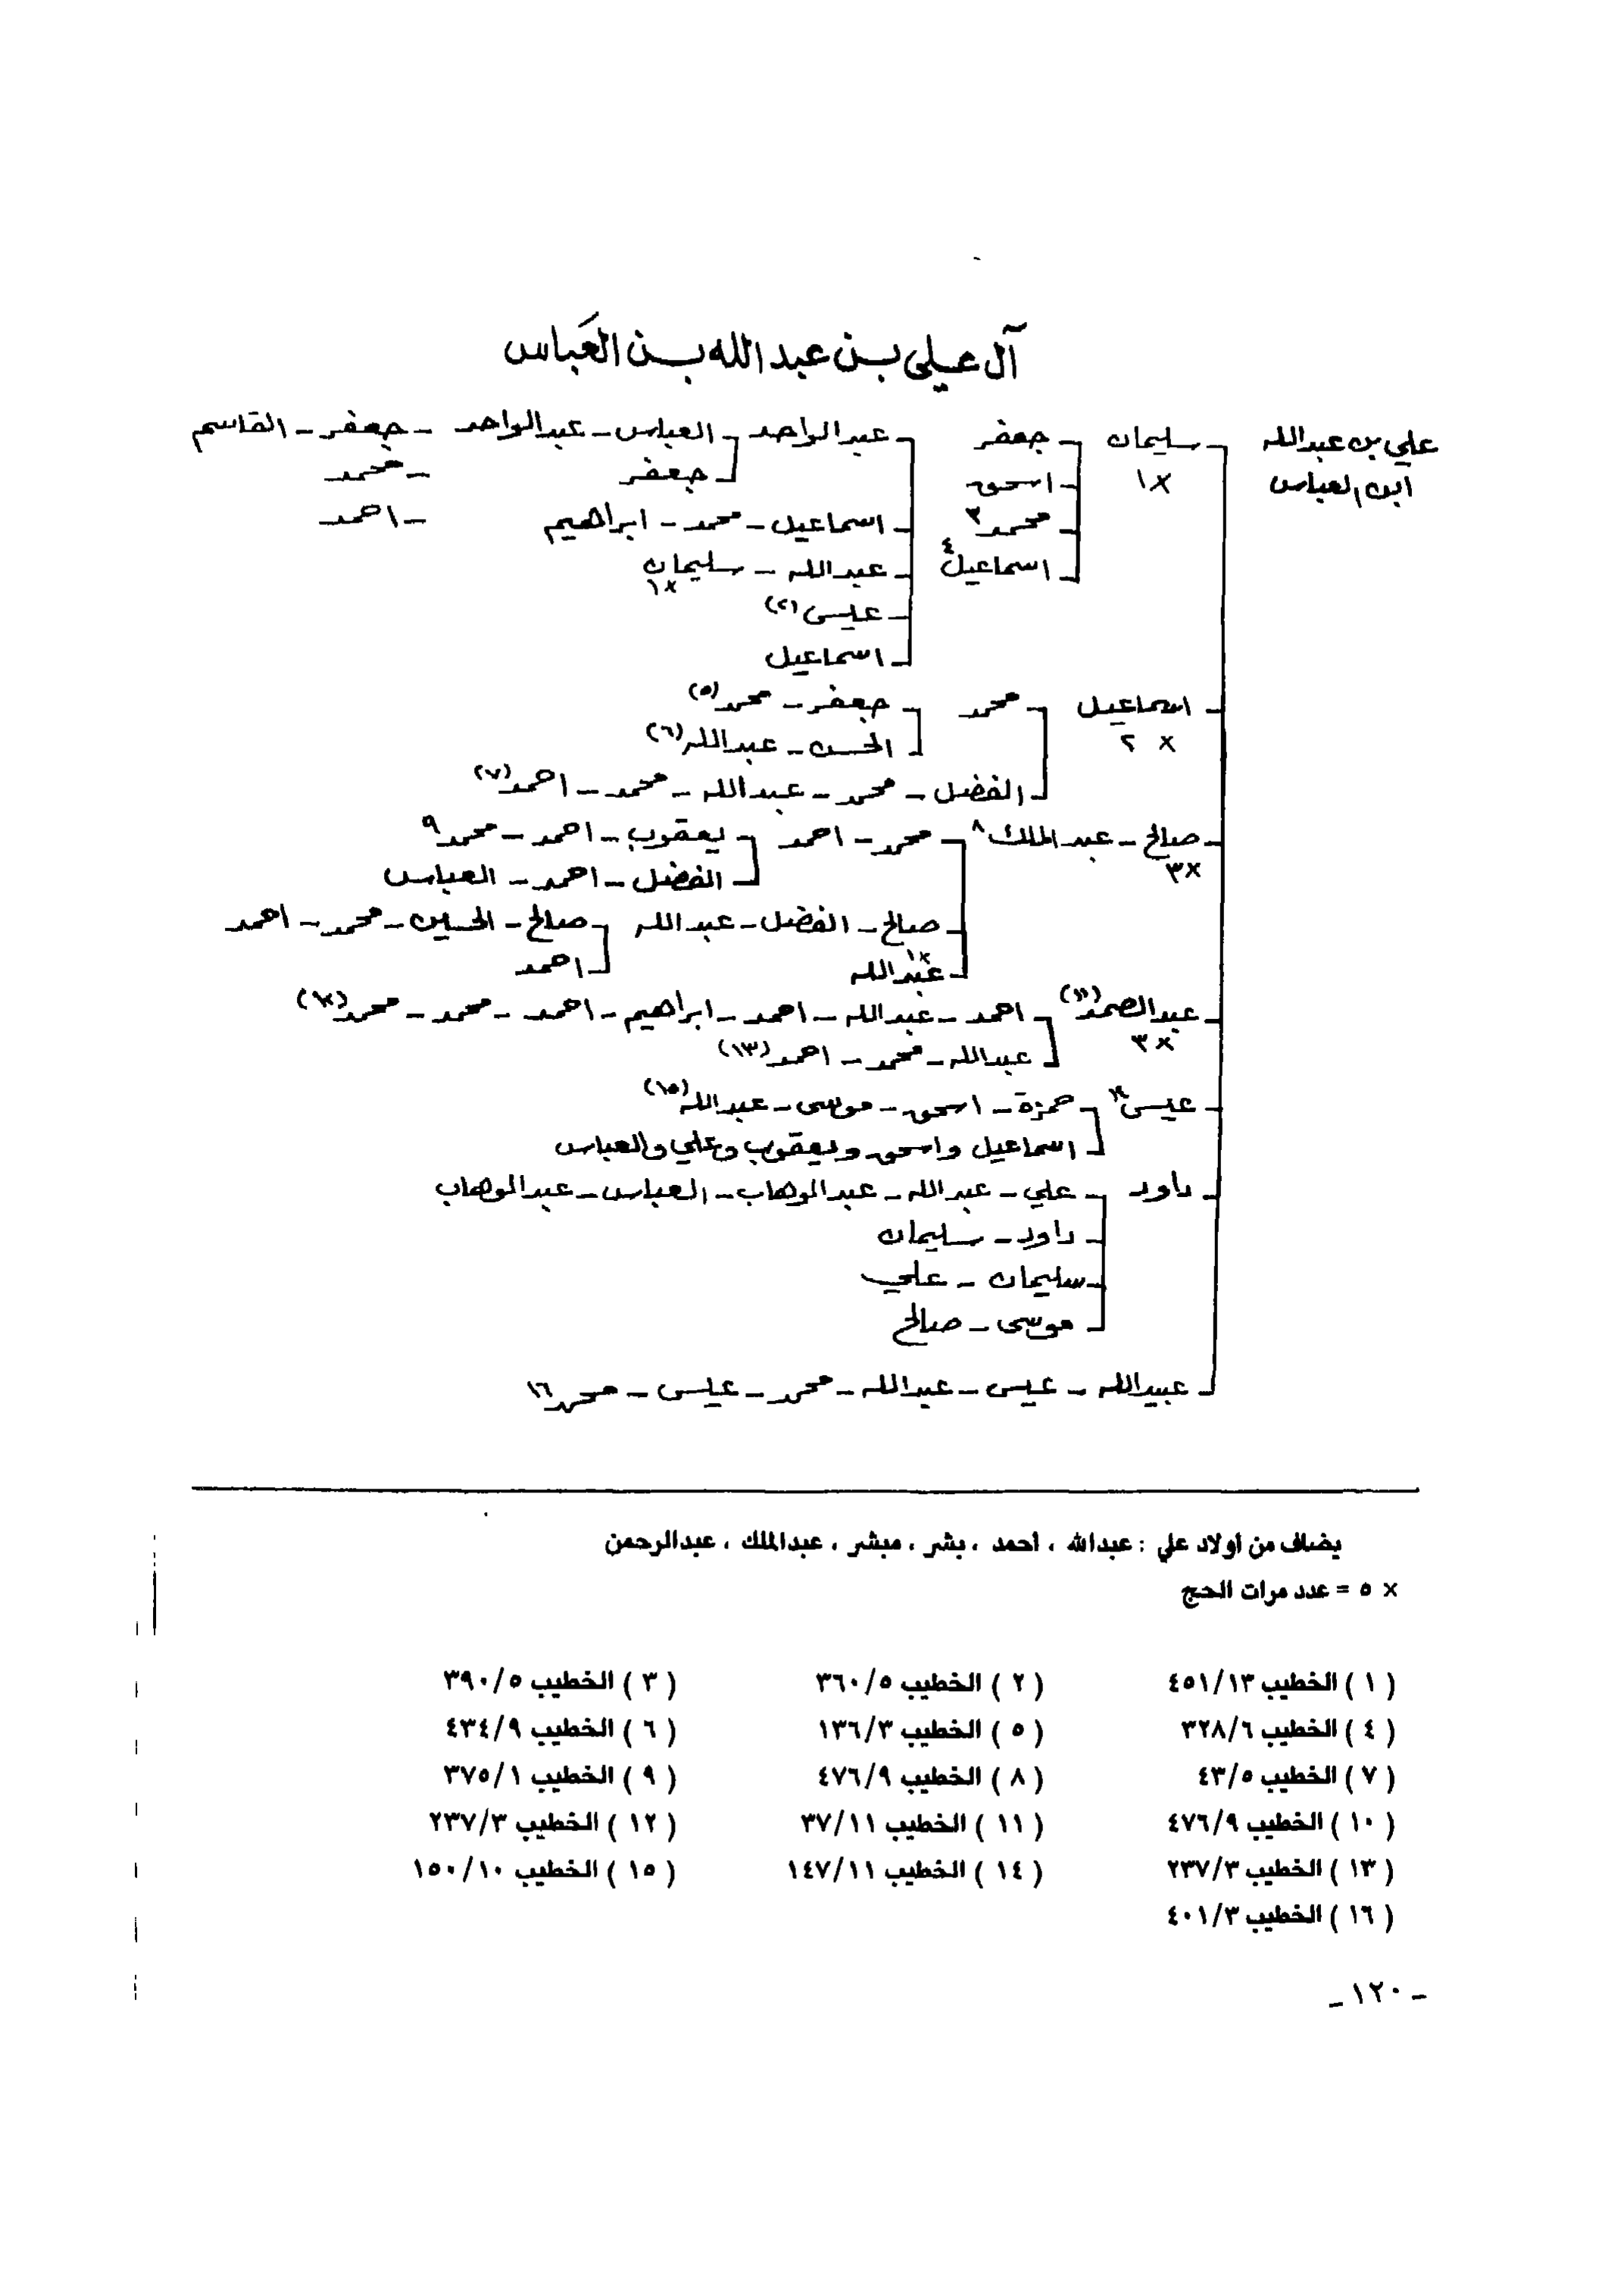 آل عَلى بن عبدالله بن العَباس
علي بن عبدالله - سليمان - جعفر - عبدالواحد - العباس - عبدالواحد - جعفر - القاسم
ابن العباس ×١ - اسحق - جعفر - محمد
- محمد ٣ - اسماعيل - محمد - ابراهيم - احمد
- اسماعيل ٤ - عبدالله - سليمان
×١
- عيسى (٢)
- اسماعيل
- اسماعيل - محمد - جعفر - محمد (٥)
× ٢ - الحسن - عبدالله (٦)
- الفضل - محمد - عبدالله - محمد - احمد (٧)
- صالح - عبدالملك ٨ - محمد - احمد - يعقوب - احمد - محمد ٩
×٣ - الفضل - احمد - العباس
- صالح - الفضل - عبدالله - صالح - الحسين - محمد - احمد
- عبدالله - احمد
- عبدالصمد (١١) - احمد - عبدالله - احمد - ابراهيم - احمد - محمد - محمد (١٢)
×٣ - عبدالله - محمد - احمد (١٣)
- عيسى ١٤ - حمزة - اسحق - موسى - عبدالله (١٥)
- اسماعيل واسحق ويعقوب وعلي والعباس
- داود - علي - عبدالله - عبدالوهاب - العباس - عبدالوهاب
- داود - سليمان
- سليمان - علي
- موسى - صالح
- عبيدالله - عيسى - عبدالله - محمد - عيسى - محمد ١٦
يضاف من اولاد علي : عبدالله ، أحمد ، بشر ، مبشر ، عبدالملك ، عبدالرحمن
× ٥ = عدد مرات الحج
( ١ ) الخطيب ٤٥١/١٣ ( ٢ ) الخطيب ٣٦٠/٥ ( ٣ ) الخطيب ٣٩٠/٥
( ٤ ) الخطيب ٣٢٨/٦ ( ٥ ) الخطيب ١٣٦/٣ ( ٦ ) الخطيب ٤٣٤/٩
( ٧ ) الخطيب ٤٣/٥ ( ٨ ) الخطيب ٤٧٦/٩ ( ٩ ) الخطيب ٣٧٥/١
( ١٠ ) الخطيب ٤٧٦/٩ ( ١١ ) الخطيب ٣٧/١١ ( ١٢ ) الخطيب ٢٣٧/٣
( ١٣ ) الخطيب ٢٣٧/٣ ( ١٤ ) الخطيب ١٤٧/١١ ( ١٥ ) الخطيب ١٥٠/١٠
( ١٦ ) الخطيب ٤٠١/٣
- ١٢٠ -